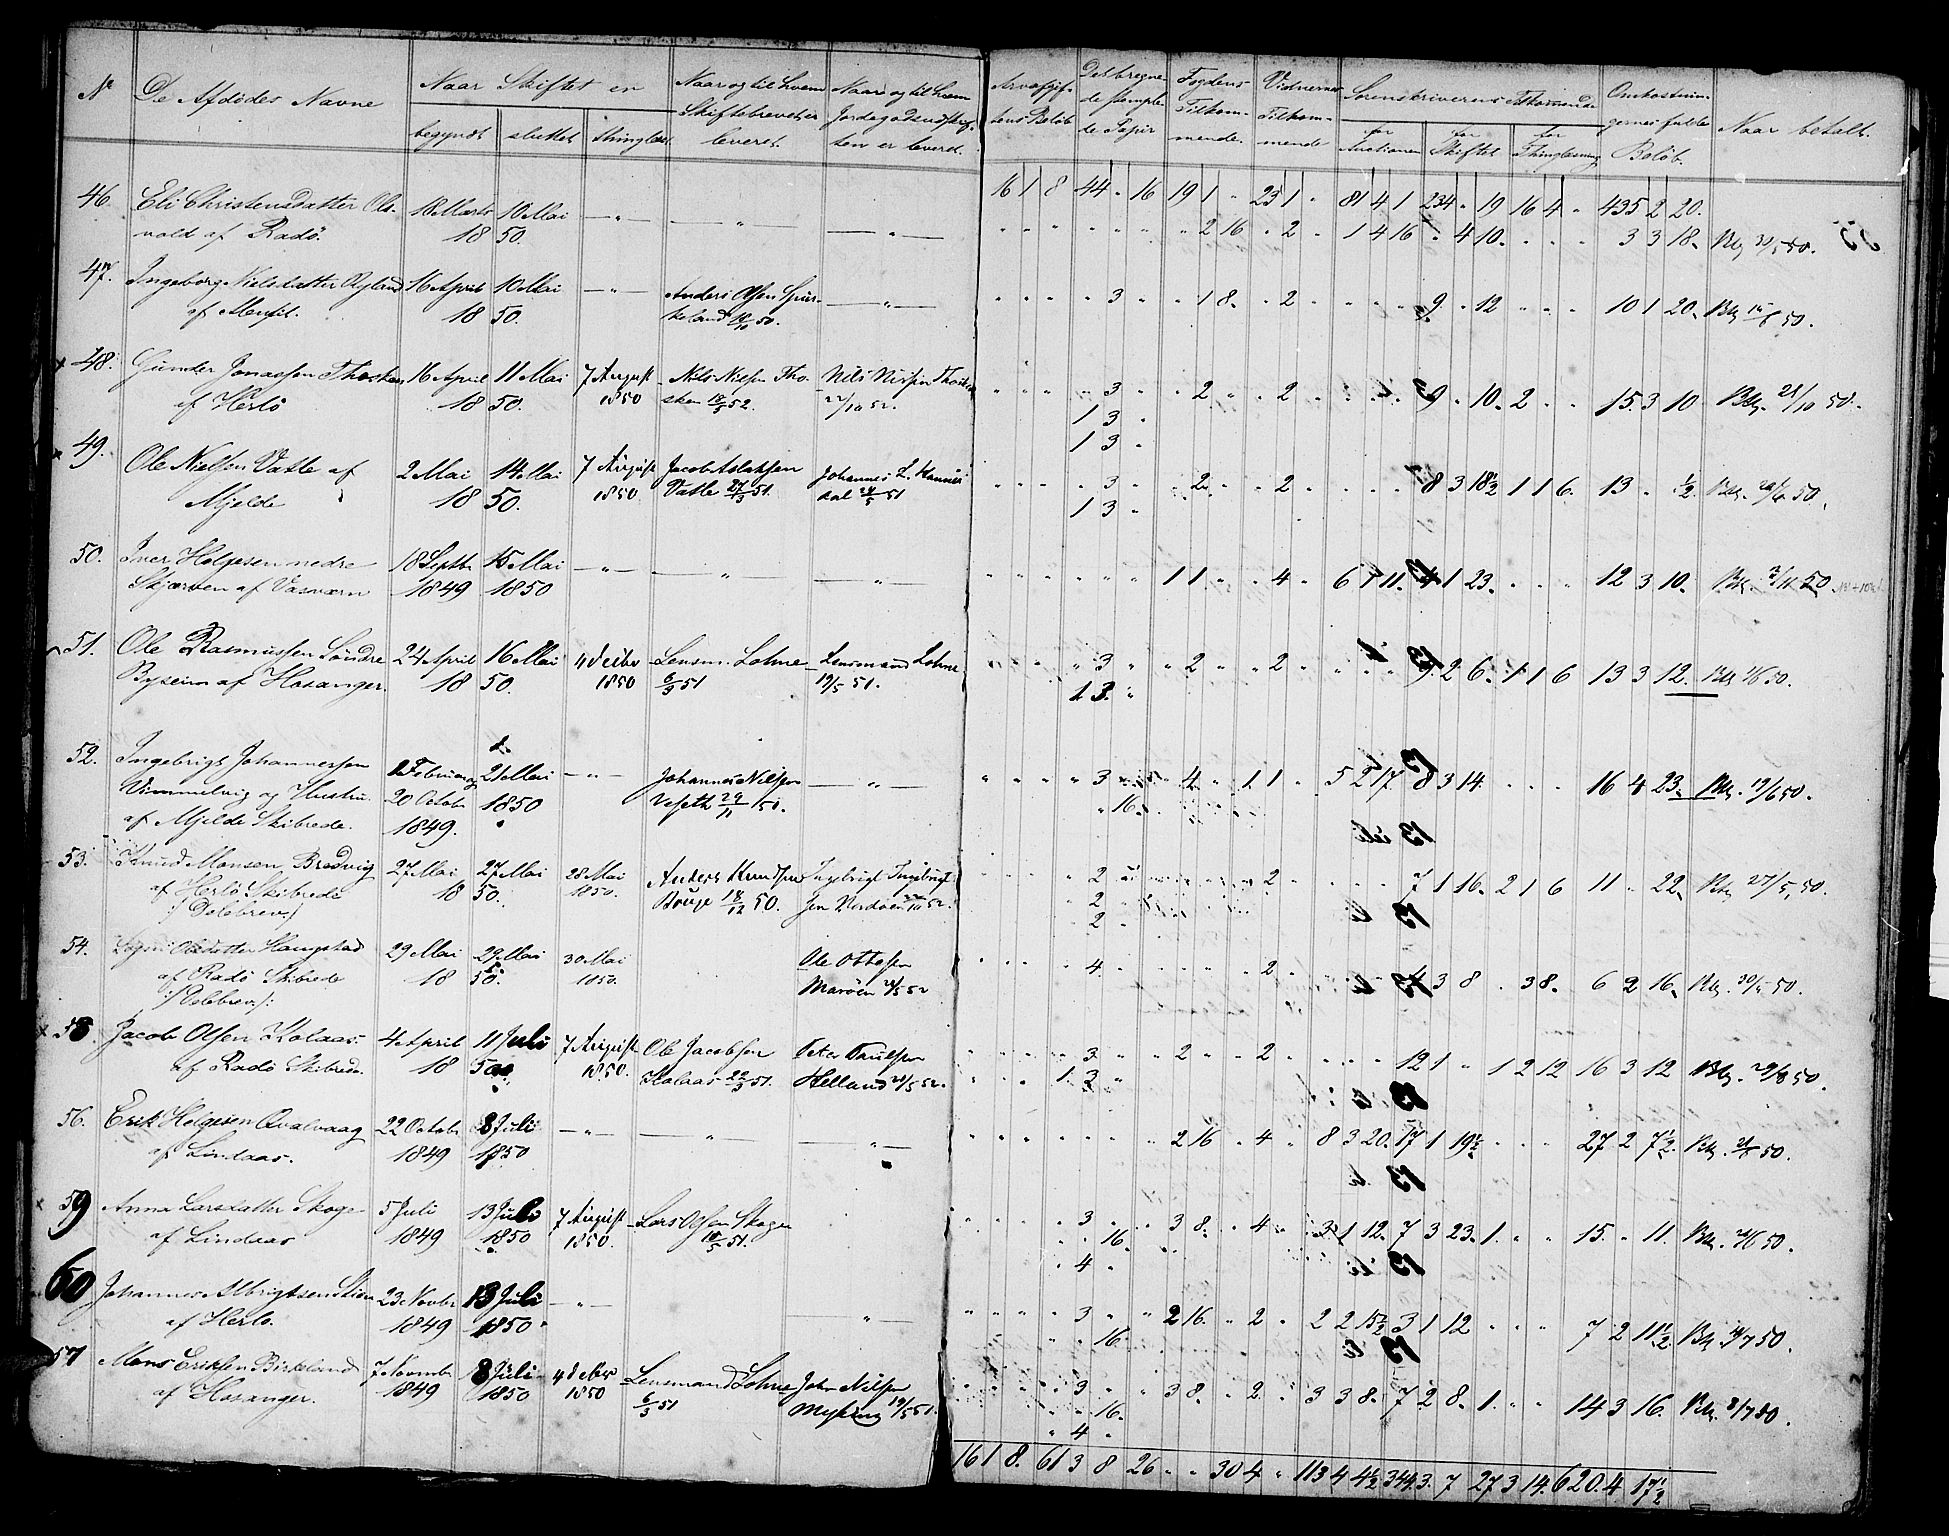 No De Afdødes Navne Naar Skiftet er Naar og til hvem Naar og til hvem
begyndt sluttet thinglæst Skiftebrevet er leveret. Jordegodsudskriften er leveret.
Arveafgiftens Beløb Det beregnede stemplede Papir Fogdens Tilkommende Vidnernes Tilkommende Sorenskriverens Tilkommende for Auctionen for Skiftet for Thinglæsning Omkostningernes fulde Beløb. Naar betalt.
16 1 8 44 " 16 19 1 " 25 1 " 81 4 1 234 " 19 16 4 " 435 2 20.
46. Eli Christensdatter Ols- 18 Marts 10 Mai — " — — " — — " —
vold af Radö. 18 50.
" 2 16 " 2 " 1 4 16 " 4 10 " " " 3 3 18. Btlg. 50.
47. Ingeborg Nielsdatter 16 April 10 Mai — " — Anders Olsen Spur- — " —
af Alenfit. 18 50. keland 50.
" 3 " " 1 8 " 2 " 9 " 12 " " " 10 1 20. Btlg. 50.
48. Gunder Jonassen Thosken 16 April 11 Mai 7 August Nils Nilsen Tho- Nils Nilsen Thosken
af Herlö 18 50. 1850 sken 52. 22/10 52.
" 3 " " 2 " " 2 " 9 " 10 2 " " 15 3 10 Btlg. 28/10 50.
1 3 "
1 3 "
49. Ole Nielsen Vatle af 2 Mai 14 Mai 7 August Jacob Aslaksen Johannes L. Hannis
Mjelde 18 50. 1850 Vatle 51. dal 51
" 3 " " 2 " " 2 " 8 3 18½ 1 1 6. 13 " ½. Btlg. 50.
1 3 "
50. Iver Helgesen nedre 18 Septbr 15 Mai — " — — " — — " —
Skjærven af Vasværn 1849 1850
1 1 " " 4 " 6 1 11. 4 1 23. " " " 12 3 10. Btlg. 50.
51. Ole Rasmussen Søndre 24 April 16 Mai 4 Decbr Lensm. Lohne Lensmand Lohne
Byseim af Hosanger. 18 50. 1850 6/3 51 19/5 51.
" 3 " " 2 " " 2 " 9. 2 6. 1 1 6 13 3 12. Btlg. 50.
1 3. "
52. Ingebrigt Johannessen Februar og 21 Mai — " — Johannes Nilsen — " —
Vimmelvig og Hustru 20 Octobr 1850 Veseth 29/11 50.
af Mjelde Skibrede. 1849.
" 3 " 4 " 1 1 " 5 2 17 8 3 14. " " " 16 4 23. Btlg. 19/6 50.
" 16.
53. Knud Monsen Bredvig 27 Mai 27 Mai 28 Mai Anders Knudsen Ingebrigt Ingebrigt-
af Herlö Skibrede 18 50. 1850. 18/12 50. sen 52.
/: Delebrev :/
" 2 " 2 " 7 1 16. 2 1 6 11 " 22. Btlg. 27/5 50.
" 2
" 2
54. Olsdatter Haugstad 29 Mai 29 Mai 30 Mai Ole Ottesen
af Radö Skibrede 18 50. 1850. Maröen 52
/: Delebrev :/
" 4 " 2 " 4 3 8 . 3 8. 6 2 16. Btlg. 30/5 50.
55. Jacob Olsen Kolaas 4 April 11 Juli 7 August Ole Jacobsen Peter Paulsen
af Radö Skibrede. 18 50. 1850. Kolaas 22/3 51. Helland 52.
" 3 " " 2 " " 2 " 12 1 " 1 2 12 16 3 12 Btlg. 29/8 50.
1. 3 "
56. Erik Helgesen Qvalvaag 22 Octobr 8 Juli — " — — " — — " —
af Lindaas. 1849 1850
" 2 16 " 4 " 8 3 20. 17 1 19½ " " " 27 2 7½. Btlg. 50.
59 Anna Larsdatter Skoge 5 Juli 13 Juli 7 August Lars Olsen Skogen
af Lindaas 1849 1850 1850. 51.
" 3 " " 3 8. " 4 " 3 1 12. 7 3 23. 1. " " 15. " 11. Btlg. 50.
" 16.
" 4 "
60 Johannes Albrigtsen 23 Novbr 13 Juli — " — — " —
af Herlö. 1849 1850
" 3 " " 2 16. " 2 " 2 2 15½ 3 1 12 " " " 7 2 11½. Btlg. 50.
" 16.
57 Mons Eriksen Birkeland 7 Novembr 8 Juli 4 Decbr Lensmand Lohne John Nilsen
af Hosanger. 1849 1850 1850 6/3 51 Myking 19/5 51.
" 3 " " 3 8. " 2. " 3 3 8. 7 2 8. 1. " " 14 3 16. Btlg. 8/7 50.
" 16.
" 4 "
16 1 8. 61 3 8 26 " " 30 4 " 113 4 4½ 344. 3. 7 27 3 14. 620. 4. 17½